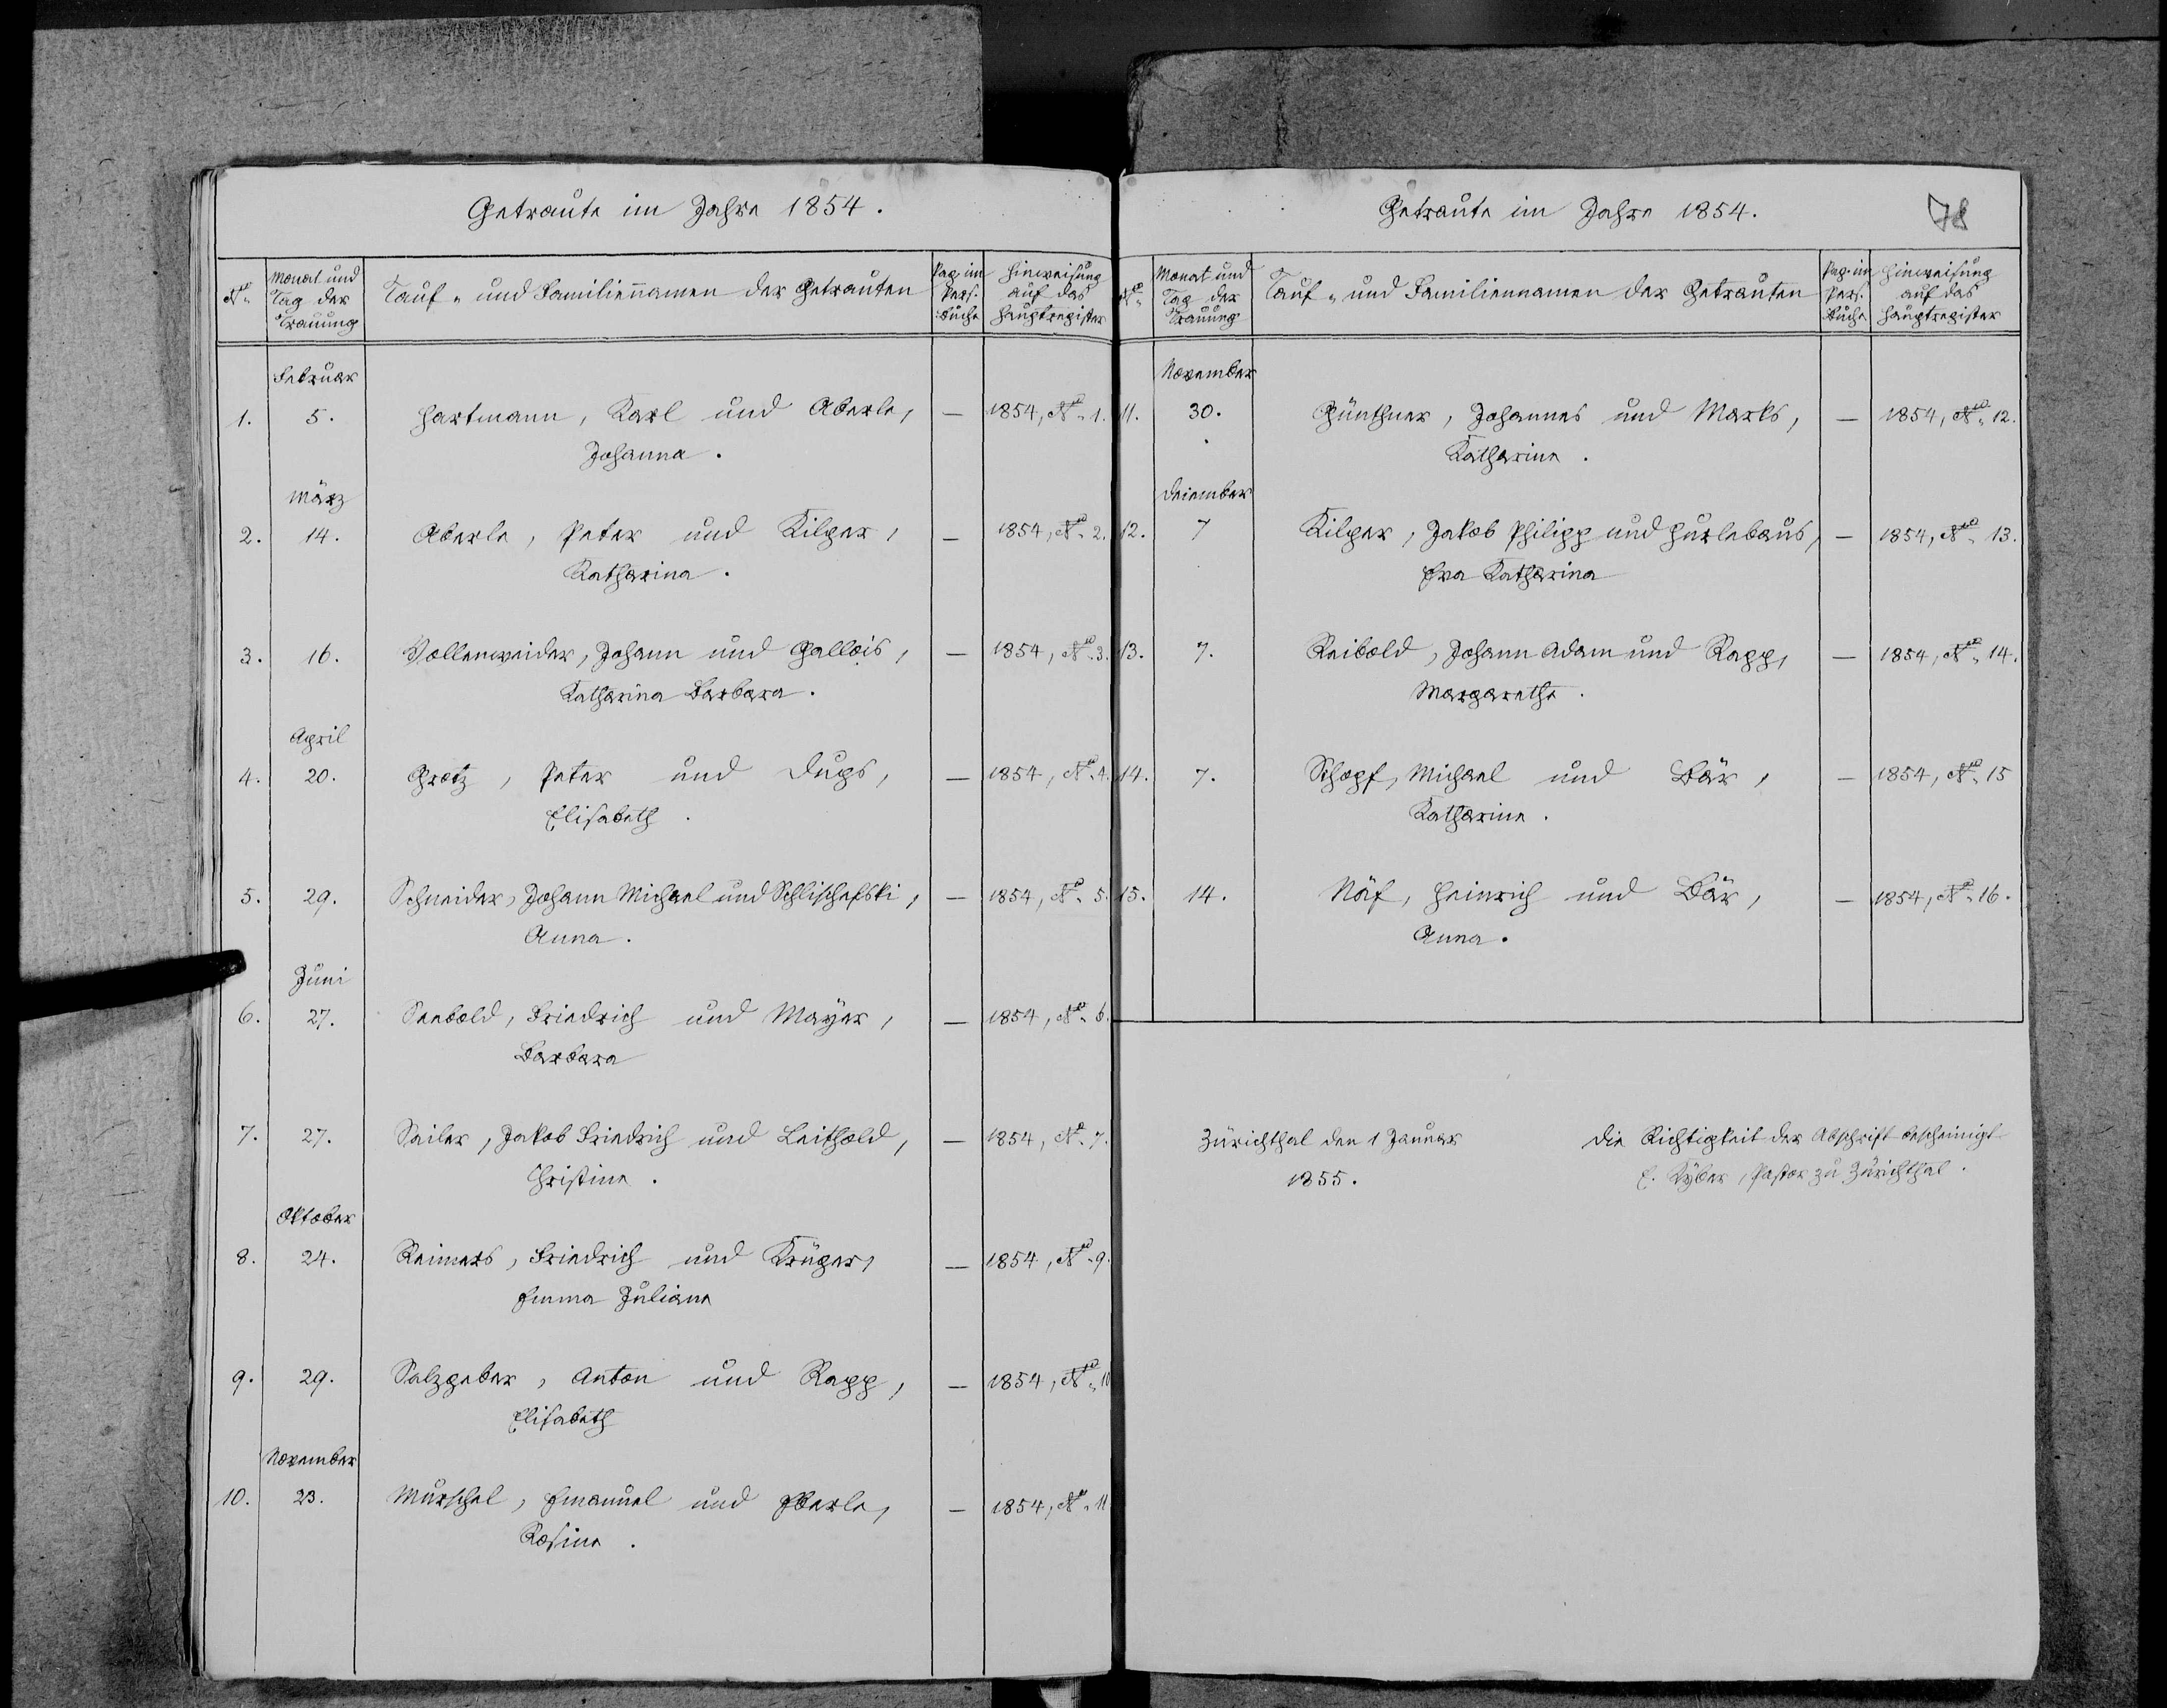 Getraute im Jahre 1854.
No. | Monat und Tag der Trauung | Tauf- und Familiennamen der Getrauten | Pag. im Pers. Buche | Hinweisung auf das Hauptregister
Februar
1. 5. Hartmann, Karl und Aberle, — 1854, No. 1.
Johanna.
März
2. 14. Aberle, Peter und Kilger, — 1854, No. 2.
Katharina.
3. 16. Vollenweider, Johann und Gallois, — 1854, No. 3.
Katharina Barbara.
April
4. 20. Grotz, Peter und Dups, — 1854, No. 4.
Elisabeth.
5. 29. Schneider, Johann Michael und Schlischefski, — 1854, No. 5.
Anna.
Juni
6. 27. Seebold, Friedrich und Mayer, — 1854, No. 6.
Barbara
7. 27. Seiler, Jakob Friedrich und Leithold, — 1854, No. 7.
Christine.
Oktober
8. 24. Reimers, Friedrich und Krüger, — 1854, No. 9.
Emma Juliane
9. 29. Salzgeber, Anton und Rapp, — 1854, No. 10
Elisabeth
November
10. 23. Murschel, Emanuel und Eberle, — 1854, No. 11
Rosine.
Getraute im Jahre 1854.
78
No. | Monat und Tag der Trauung | Tauf- und Familiennamen der Getrauten | Pag. im Pers. Buche | Hinweisung auf das Hauptregister
November
11. 30. Günthner, Johannes und Marks, — 1854, No. 12.
Katharine.
Deiember
12. 7 Kilger, Jakob Philipp und Hurlebaus, — 1854, No. 13.
Eva Katharina
13. 7. Reibold, Johann Adam und Rapp, — 1854, No. 14.
Margarethe.
14. 7. Schopf, Michael und Bär, — 1854, No. 15
Katharine.
15. 14. Näf, Heinrich und Bär, — 1854, No. 16.
Anna.
Zürichthal den 1 Januar
1855.
Die Richtigkeit der Abschrift bescheinigt
E. Kyber, Pastor zu Zürichthal.